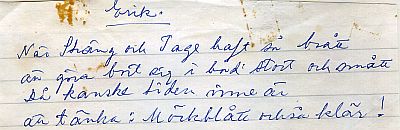 Erik.
När Sträng och Tage haft så brått
än göra bort sig i båd' stort och smått
så kanske tiden inne är
att tänka: Mörkblått också klär!